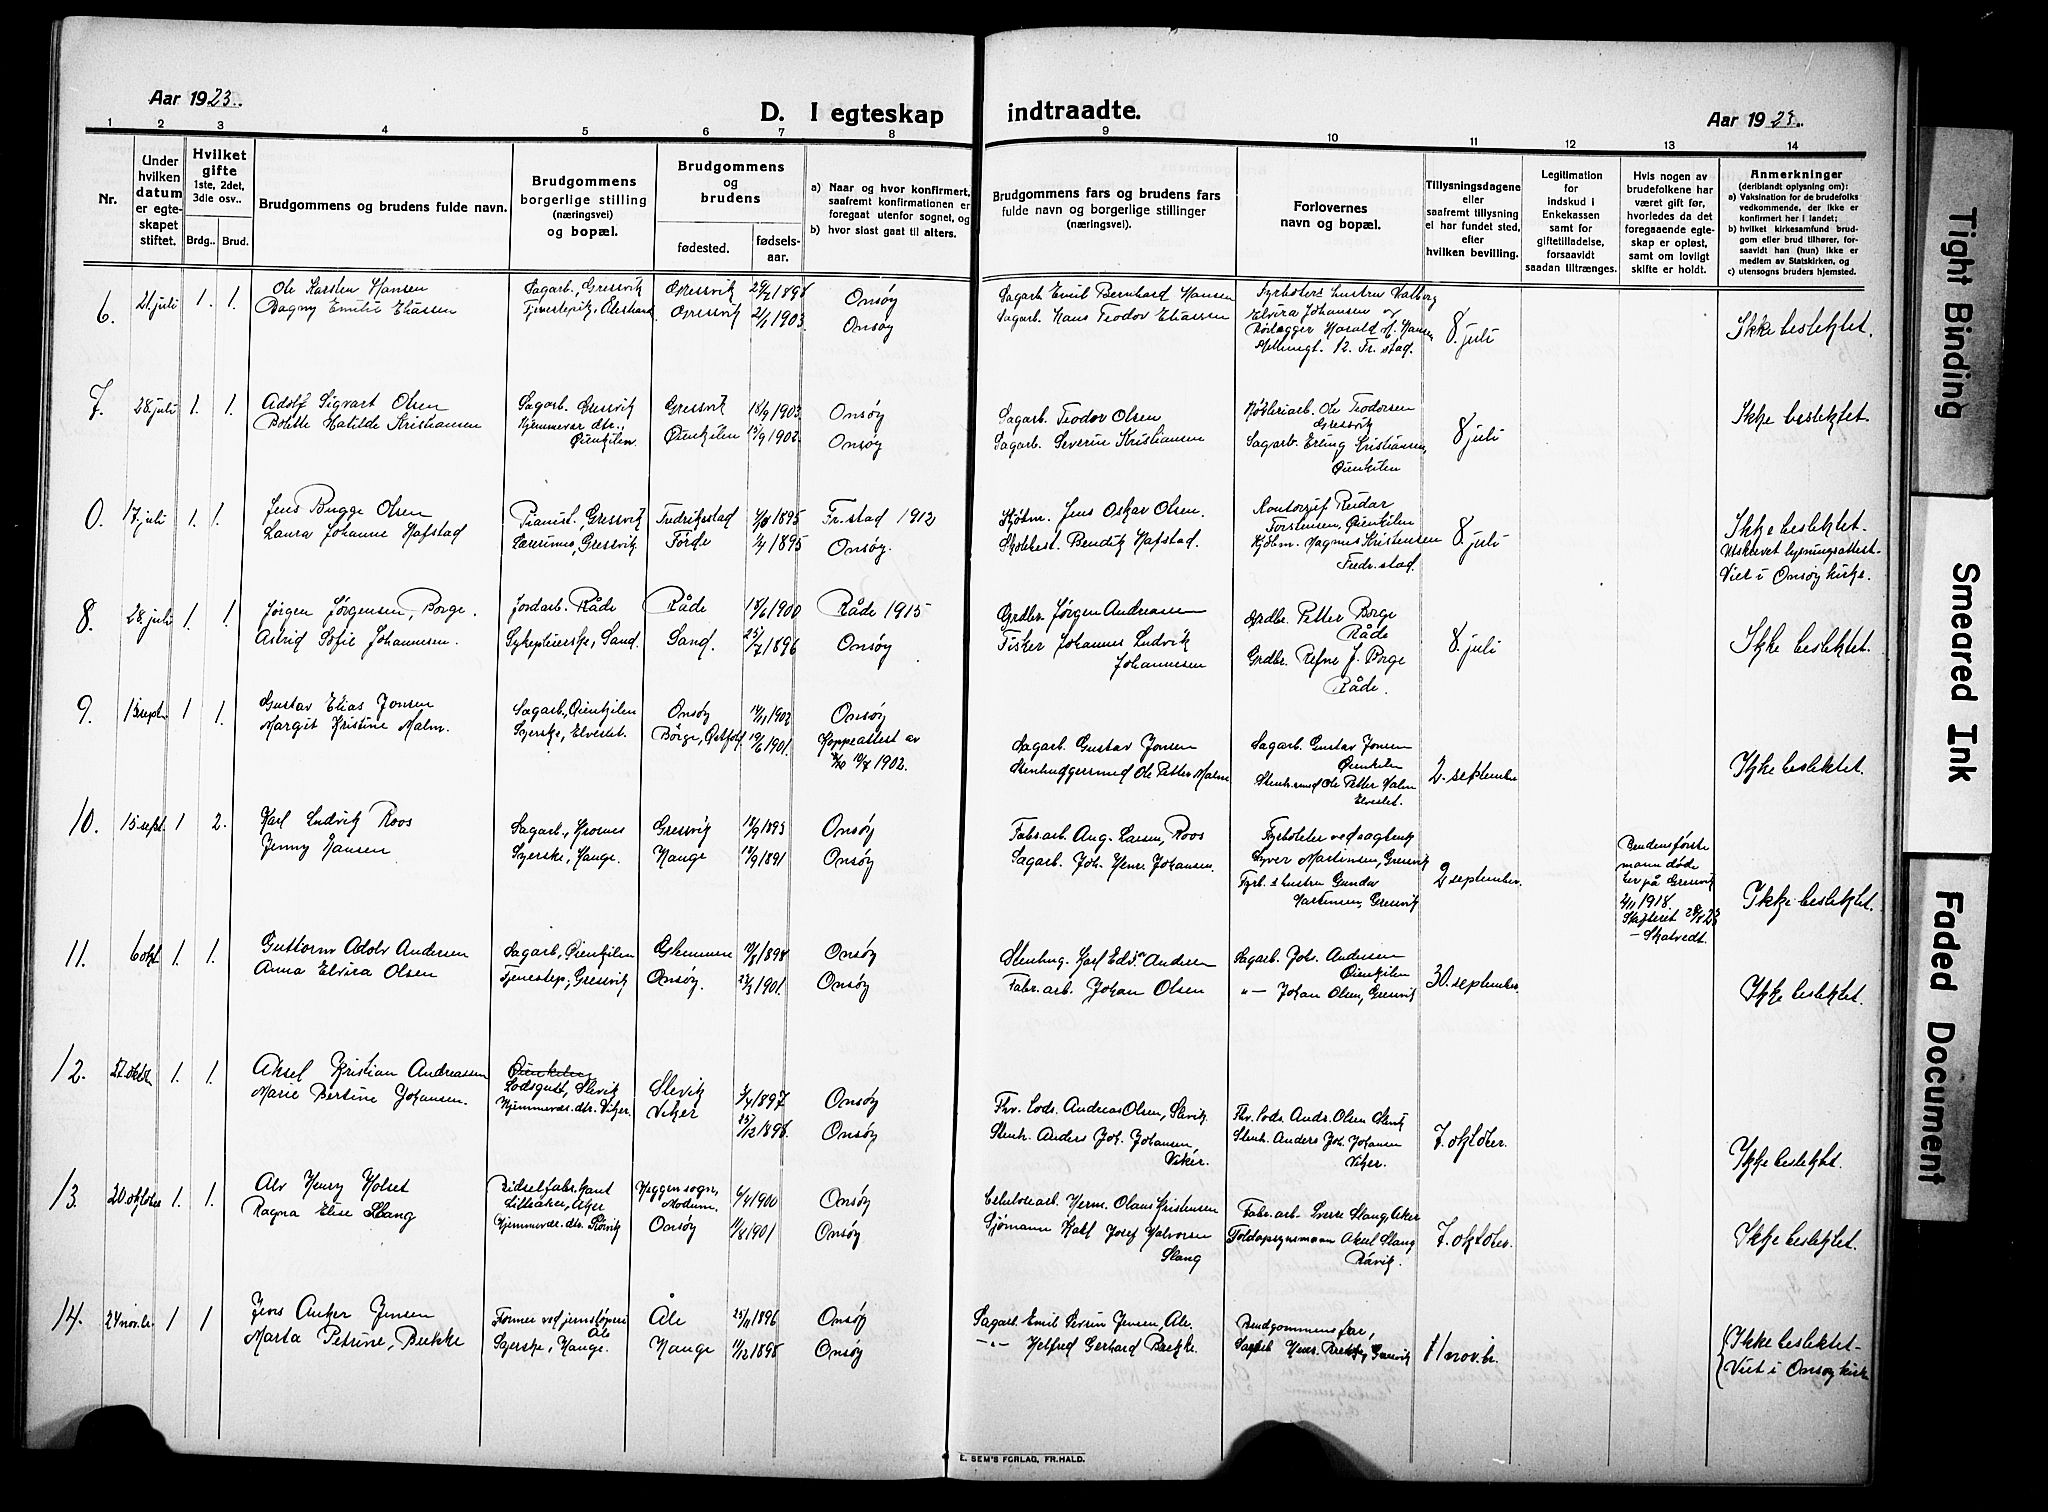 Aar 1923.
D. I egteskap indtraadte.
Aar 1923.
1 2 3 4 5 6 7 8 9 10 11 12 13 14
Nr.
Under hvilken datum er egteskapet stiftet.
Hvilket gifte 1ste, 2det, 3die osv..
Brdg.. Brud.
Brudgommens og brudens fulde navn.
Brudgommens borgerlige stilling (næringsvei) og bopæl.
Brudgommens og brudens
fødested.
fødselsaar.
a) Naar og hvor konfirmert, saafremt konfirmationen er foregaat utenfor sognet, og
b) hvor sidst gaat til alters.
Brudgommens fars og brudens fars fulde navn og borgerlige stillinger (næringsvei).
Forlovernes navn og bopæl.
Tillysningsdagene eller saafremt tillysning ei har fundet sted, efter hvilken bevilling.
Legitimation for indskud i Enkekassen samt for giftetilladelse, forsaavidt saadan tiltrænges.
Hvis nogen av brudefolkene har været gift før, hvorledes da det foregaaende egteskap er opløst, samt om lovligt skifte er holdt.
Anmerkninger (deriblandt oplysning om):
a) Vaksination for de brudefolks vedkommende, der ikke er konfirmert her i landet;
b) hvilket kirkesamfund brudgom eller brud tilhører, forsaavidt han (hun) ikke er medlem av Statskirken, og
c) utensogns bruders hjemsted.
6. 21 juli 1. 1. Ole Karsten Hansen Sagarb., Gressvik Gressvik 1898 Onsøy Sagarb. Emil Bernhard Hansen
Dagny Emilie Eliassen Gressvik 1903 Onsøy Sagarb. Hans Teodor Eliassen
Elvira Johansen og
Harald M. Hansen
Fr. stad.
8. juli Ikke beslektet.
7. 28. juli 1. 1. Adolf Sigvart Olsen Sagarb. Gressvik Gressvik 18/9 1903 Onsøy Sagarb. Teodor Olsen Ole Teodorsen Gressvik
Bolette Matilde Kristiansen Hjemmevær. dtr., Øienkilen Øienkilen 15/9 1902 Onsøy Sagarb. Severin Kristiansen Sagarb. Erling Kristiansen, Øienkilen
8 juli Ikke beslektet.
0. 17. juli 1. 1. Jens Bugge Olsen Pianist, Gressvik Fredrikstad 1895 Fr.stad 1912 Kjøbm. Jens Oskar Olsen. Kontorsjef Reidar Torstensen, Øienkilen
Laura Johanne Hafstad Lærerinne, Gressvik Førde 1895 Onsøy. Bendik Hafstad. Kjøbm. Magnus Kristensen Fredr.stad.
8. juli Ikke beslektet.
Utskrevet lysningsattest
Viet i Onsøy kirke.
8. 28. juli 1. 1. Jørgen Jørgensen, Borge. Jordarb. Råde Råde 18/6 1900 Råde 1915 Grdbr. Jørgen Andreassen Grdbr. Petter Borge Råde
Astrid Sofie Johannesen. Sykepleierske, Sand. Sand. 25/7 1896 Onsøy Fisker Johannes Ludvik Johannesen Grdbr. Refne J. Borge Råde.
8. juli Ikke beslektet.
9. 15 sept. 1 1. Gustav Elias Jonsen Sagarb., Øienkilen Onsøy 1902 Onsøy Sagarb. Gustav Jonsen Sagarb. Gustav Jonsen Øienkilen
Margit Kristine Malm. Syerske, Elveslet. Borge, Østfold 19/6 1901. Koppeattest av 1902. Ole Petter Malm Ole Petter Malm Elveslet.
2. september Ikke beslektet.
10. 15 sept. 1 2. Karl Ludvik Roos Sagarb., Gressvik 18/9 1893 Onsøy Fabr.arb. Aug. Larsen, Roos Fyrbøter ved sagbruk Syver Martinsen, Gressvik
Jenny Hansen Syerske, Hauge. Hauge 18/9 1891 Onsøy Sagarb. Joh. Henr. Johansen. Fyrb.s hustru Gunda Martinsen, Gressvik
2 september. Brudens første mann døde her på Gressvik 1918. Skifteret Skatvedt. Ikke beslektet.
11. 6 okt. 1. 1. Guttorm Adolv Andersen Sagarb., Øienkilen Glemmen 1898 Onsøy Stenhug. Karl Edv. Andersen Sagarb. Joh. Andersen Øienkilen
Anna Elvira Olsen Tjenestep., Gressvik Onsøy. 1901. Onsøy Fabr. arb. Johan Olsen „— Johan Olsen, Gressvik
30. september. Ikke beslektet.
12. 27. okt. 1. 1. Aksel Kristian Andreassen Øienkilen Lodsgutt, Slevik Slevik 1897 Onsøy Fhv. lods. Andreas Olsen, Slevik. Fhv. lods. Andr. Olsen Slevik
Marie Bertine Johansen. Hjemmevær. dtr. Viker. Viker 25/12 1896. Onsøy Stenh. Anders Joh. Johansen Viker. Stenh. Anders Joh. Johansen Viker.
7. oktober. Ikke beslektet.
13. 20. oktober 1. 1. Alv Henry Holset Lilleaker, Aker Heggen sogn, Modum. 1900 Onsøy Herm. Olaus Kristensen Fabr. arb. Sverre Slang, Aker
Ragna Elise Slang Hjemmevær. dtr. Rørvik Onsøy 11/8 1901 Onsøy Sjømann Karl Josef Halvorsen Slang Toldopsynsmann Aksel Slang Rørvik.
7. oktober. Ikke beslektet.
14. 24 nov.br. 1 1 Jens Anker Jensen Former ved jernstøperi Åle Åle 25/11 1896 Onsøy Sagarb. Emil Severin Jensen, Åle. Brudgommens far,
Marta Petrine, Bekke Syerske, Hauge. Hauge 11/12 1898 Onsøy —„— Helfred Gerhard Bekke. Sagarb. Bekke, Gressvik
11 nov.br. Ikke beslektet
Viet i Onsøy kirke
E. SEM'S FORLAG, FR.HALD.
Tight Binding
Smeared Ink
Faded Document